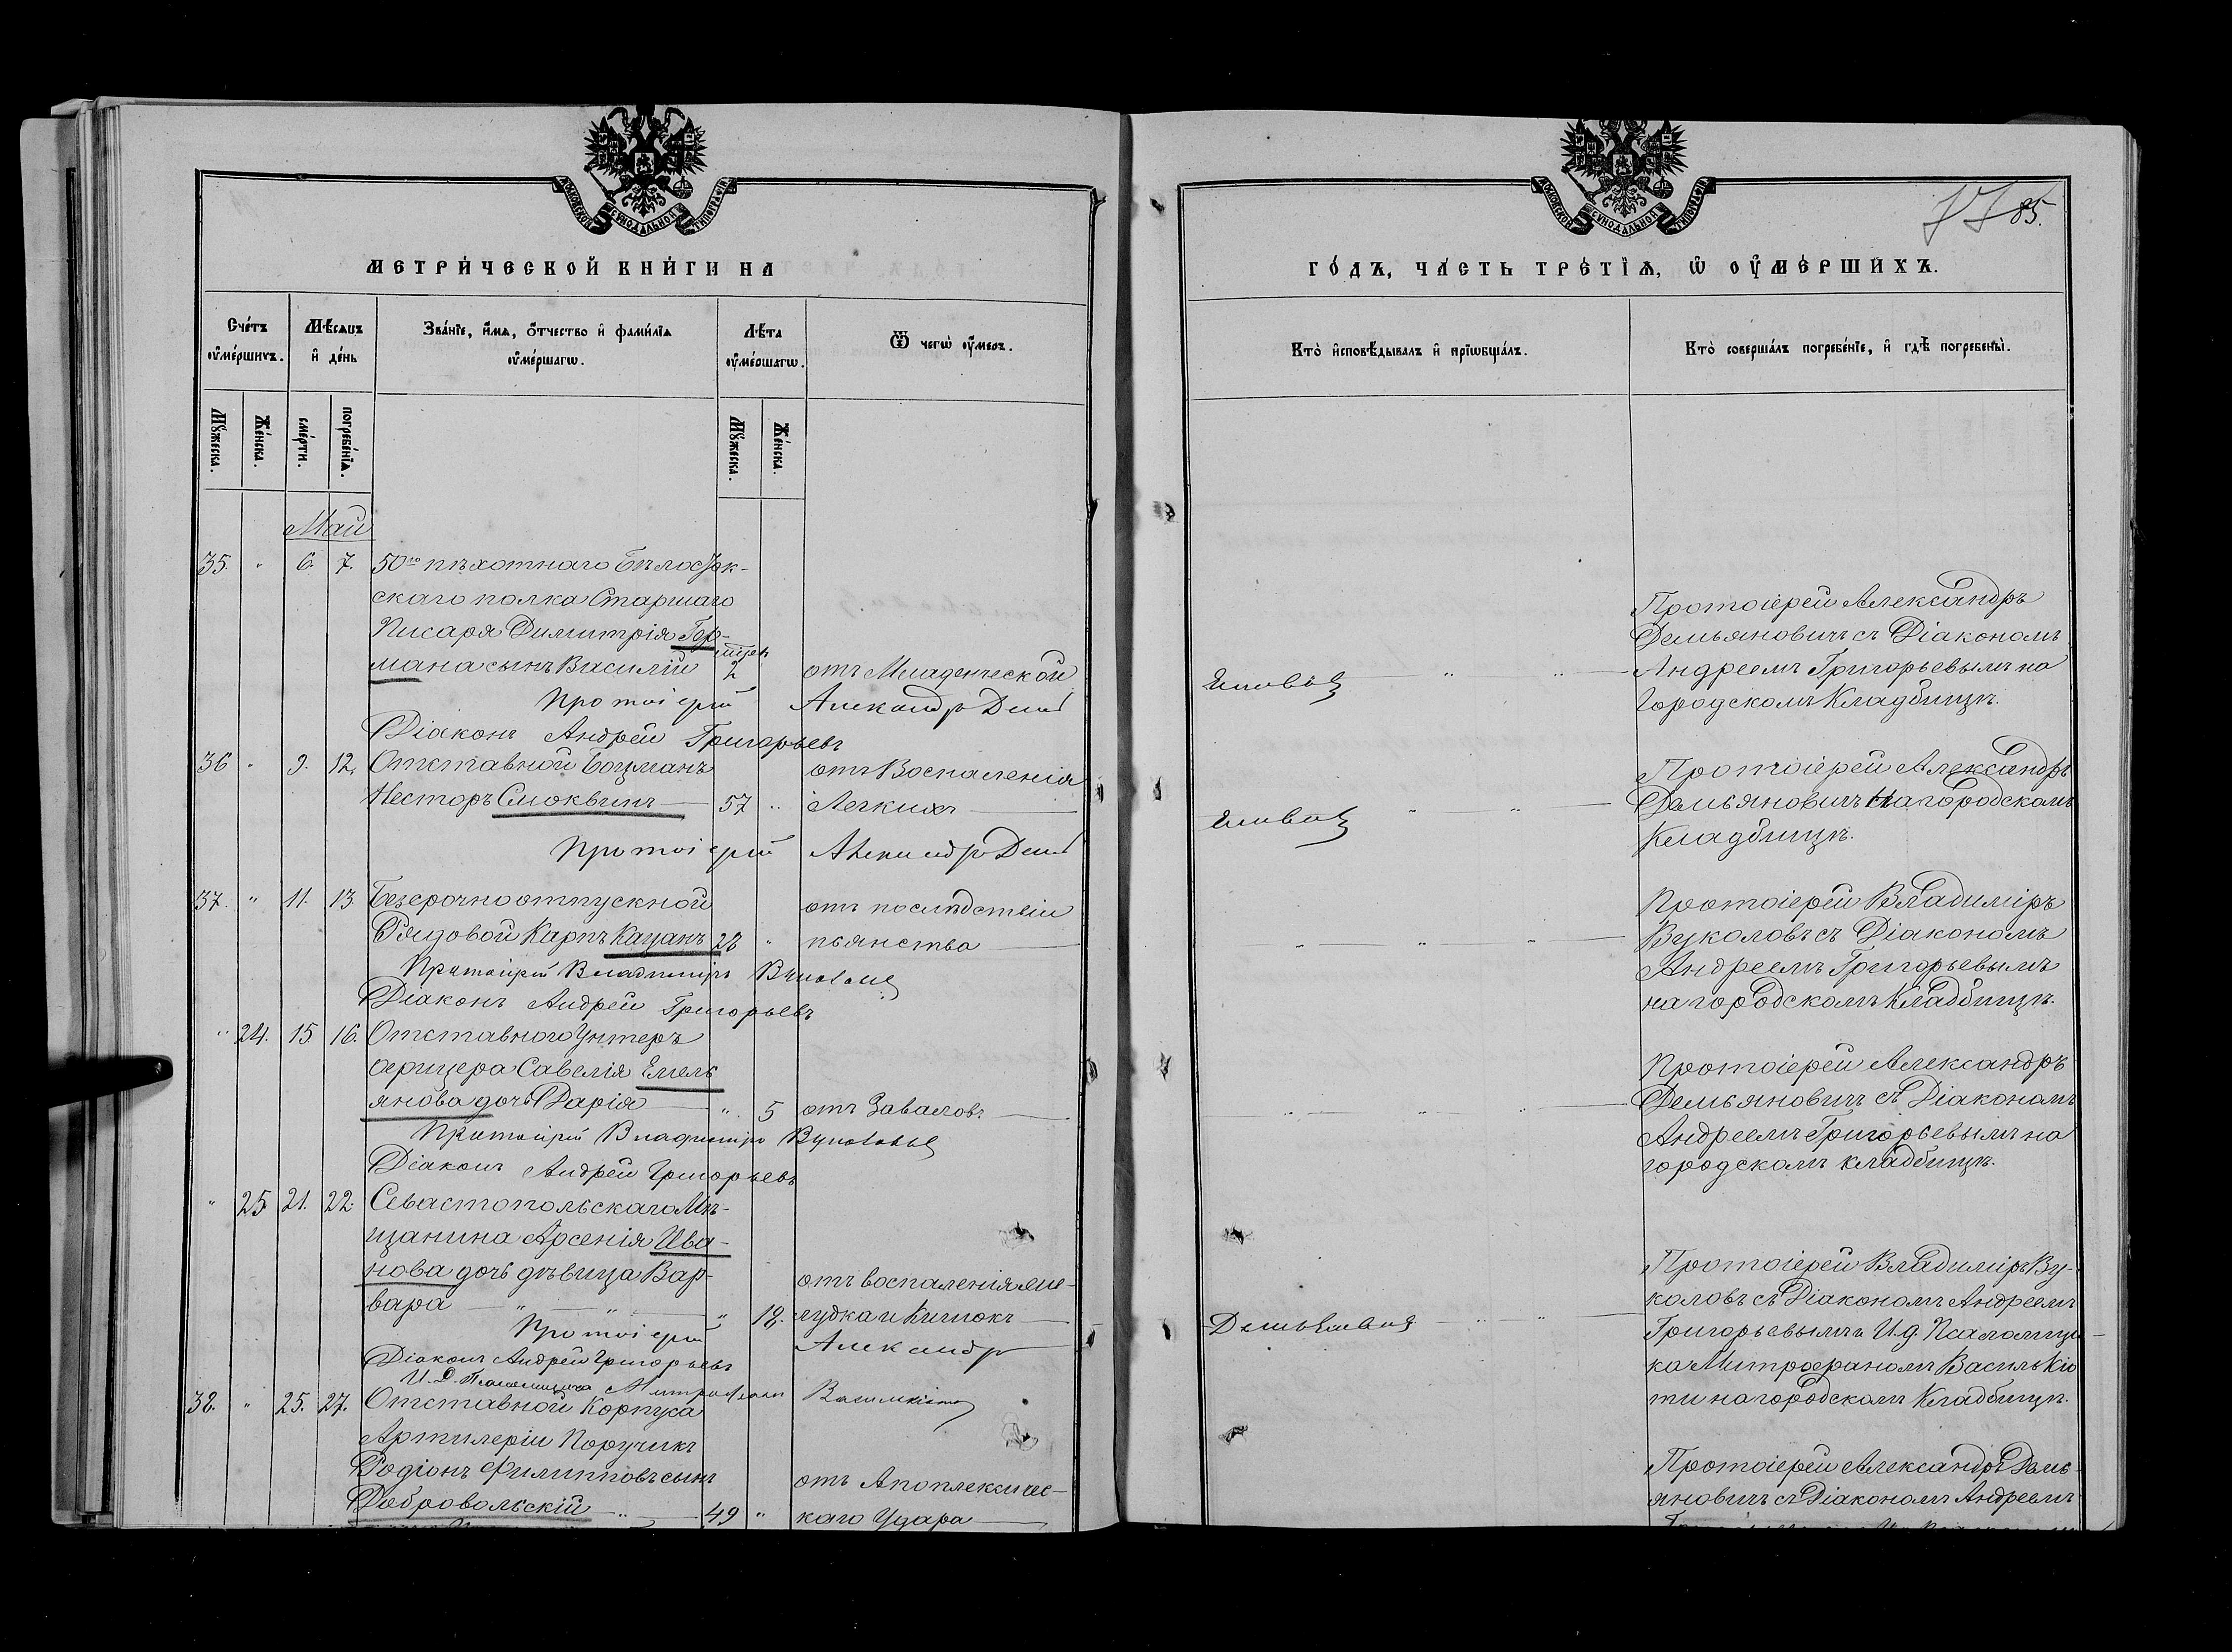 МОСКОВСКОЙ СѴНОДАЛЬНОЙ ТИПОГРАФІИ
МЕТРИ́ЧЕСКОЙ КНИ́ГИ НА
Сче́тъ ᲂу҆ме́ршихъ.
Мѣ́сѧцъ и҆ де́нь
Зва́нїе, и҆́мѧ, ѻ҆́тчество и҆ фами́лїѧ ᲂу҆ме́ршагѡ.
Лѣ́та ᲂу҆ме́ршагѡ.
Ѿ чегѡ̀ ᲂу҆́меръ.
Мꙋ́жеска.
Же́нска.
сме́рти.
погребе́нїѧ.
Мꙋ́жеска.
Же́нска.
Май
35. " 6. 7. 50го пѣхотнаго Бѣлосток-
скаго полка Старшаго
Писаря Димитрія Гер-
мана сынъ Василій 2 отъ Младенческой
Протоіерей Александръ
Діаконъ Андрей Григорьевъ
36 " 9. 12. Отставной Боцманъ отъ Воспаленія
Несторъ Смоквинъ 57 " Легкихъ
Протоіерей Александръ
37. " 11. 13. Безсрочноотпускной отъ послѣдствіи
Рядовой Карпъ Кацанъ 28 " пьянства
Протоіерей Владиміръ Вуколовъ
Діаконъ Андрей Григорьевъ
" 24. 15 16. Отставного Унтеръ
офицера Савелія Емель
янова дочь Дарія " 5 отъ Заваловъ
Протоіерей Владиміръ Вуколовъ
Діаконъ Андрей Григорьевъ
" 25 21. 22. Севастопольскаго Мѣ-
щанина Арсенія Ива-
нова дочь дѣвица Вар- отъ воспаленія же-
вара " " " 18. лудка и Кишокъ
Протоіерей Александръ
Діаконъ Андрей Григорьевъ
И. Д. Псаломщика Митрофанъ Василькіоти
38. " 25. 27. Отставной Корпуса
Артилеріи Поручикъ
Родіонъ Филипповъ сынъ отъ Апоплексичес-
Добровольскій " 49 " каго Удара
МОСКОВСКОЙ СѴНОДАЛЬНОЙ ТИПОГРАФІИ
77 85.
ГО́ДЪ, ЧА́СТЬ ТРЕ́ТІѦ, Ѡ҆ ОУ҆МЕ́РШИХЪ.
Кто̀ и҆сповѣ́дывалъ и҆ прїѡбща́лъ.
Кто̀ соверша́лъ погребе́нїе, и҆ гдѣ̀ погребены̀.
Протоіерей Александръ
Демьяновичъ съ Діакономъ
" " Андреемъ Григорьевымъ на
Городскомъ Кладбищѣ.
Протоіерей Александръ
" " Демьяновичъ На городскомъ
Кладбищѣ.
Протоіерей Владиміръ
" " " Вуколовъ съ Діакономъ
Андреемъ Григорьевымъ
на городскомъ Кладбищѣ.
Протоіерей Александръ
" " " Демьяновичъ съ Діакономъ
Андреемъ Григорьевымъ на
городскомъ кладбищѣ.
Протоіерей Владиміръ Ву-
коловъ съ Діакономъ Андреемъ
Демьяновичъ " " Григорьевымъ и И. д. Псаломщи-
ка Митрофаномъ Василькіо
ти на городскомъ Кладбищѣ.
Протоіерей Александръ Демь-
яновичъ съ Діакономъ Андреемъ